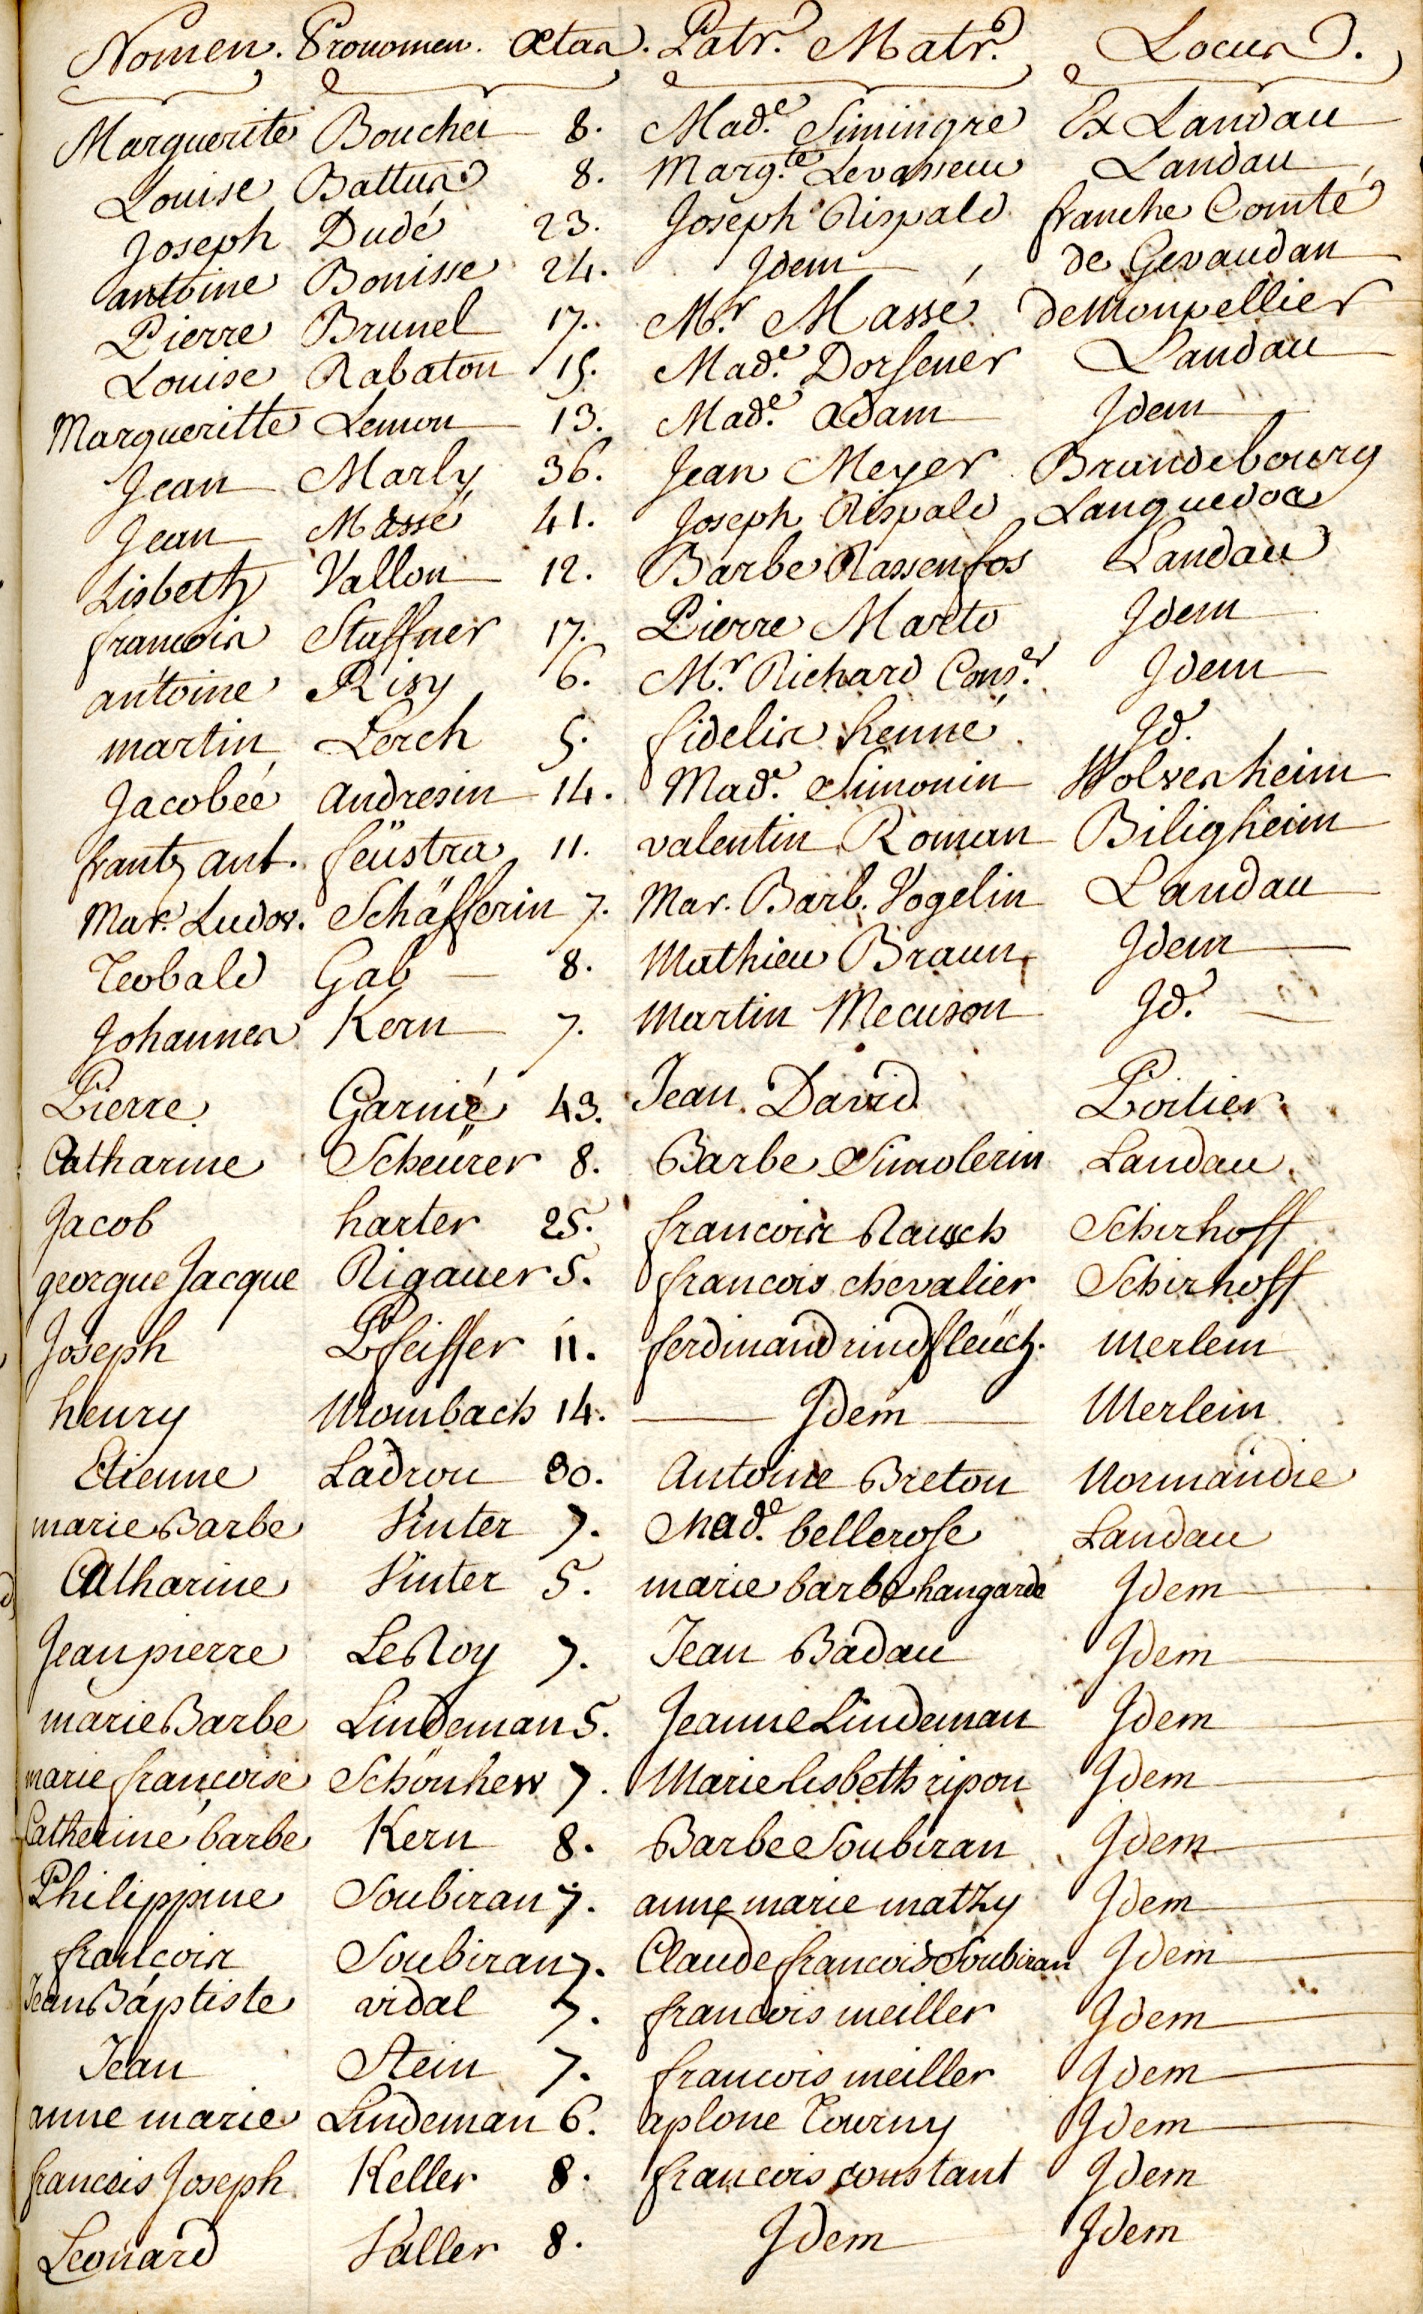 Nomen. Pronomen. Ætas. Patr. Matr. Locus.
Marguerite Boucher 8. Made. Simingre Ex Landau
Louise Battus 8. Margte. Levasseur Landau
Joseph Dudé 23. Joseph Rispald franche Comté
antoine Bonisse 24. Idem de Gevaudan
Pierre Brunel 17. Mr. Massé de Monpellier
Louise Rabaton 15. Made. Dorsener Landau
Margueritte Lemon 13. Made. Adam Idem
Jean Marly 36. Jean Meyer Brandebourg
Jean Massé 41. Joseph Rispald Languedoc
Lisbeth Vallon 12. Barbe Rassenfos Landau
francois Staffner 17. Pierre Marto Idem
antoine Risy 6. Mr. Richard Conser. Idem
martin Lerch 5. fidelis henné Id.
Jacobée Andresin 14. Made. Simonin Wolvesheim
frantz ant. feüstra 11. valentin Roman Biligheim
Mar. Ludov. Schäfferin 7. Mar. Barb. Vogelin Landau
Teobald Gab 8. Mathieu Braun Idem
Johannes Kern 7. Martin Mecuson Id.
Pierre Garnié 43. Jean David Poitier
Catharine Scheürer 8. Barbe Simolerin Landau
Jacob harter 25. francois Rausch Schirhoff
george Jacque Rigauer 5. francois chevalier Schirhoff
Joseph Pfeiffer 11. ferdinand rindfleüch. Merlem
henry Mombach 14. Idem Merlein
Etienne Ladrou 30. Antoine Breton Normandie
marie Barbe Vinter 7. Made. bellerose Landau
Catharine Vinter 5. marie barbe hangarde Idem
Jean pierre Le Roy 7. Jean Badau Idem
marie Barbe Lindeman 5. Jeanne Lindeman Idem
marie françoise Schönherr 7. Marie lisbeth ripon Idem
Catherine barbe Kern 8. Barbe Soubiran Idem
Philippine Soubiran 7. anne marie mathy Idem
françois Soubiran 7. Claude francois Soubiran Idem
Jean Baptiste vidal 7. francois meiller Idem
Jean Stein 7. francois meiller Idem
anne marie Lindeman 6. aplone Tourny Idem
francois Joseph Keller 8. francois constant Idem
Leonard Valler 8. Idem Idem